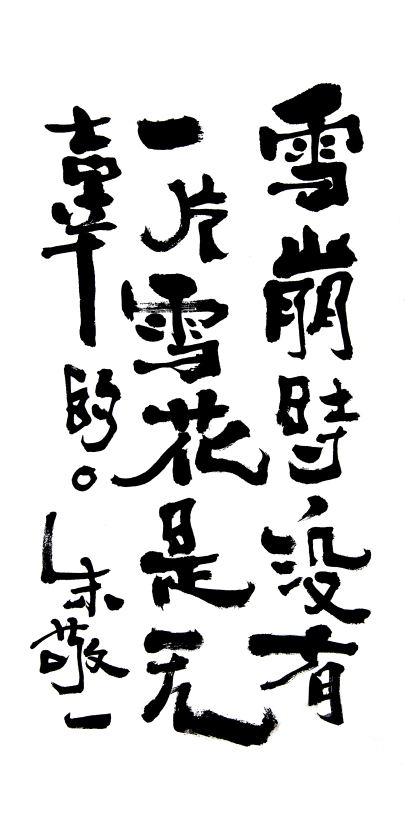 雪崩時没有
一片雪花是无
辜的。朱敬一